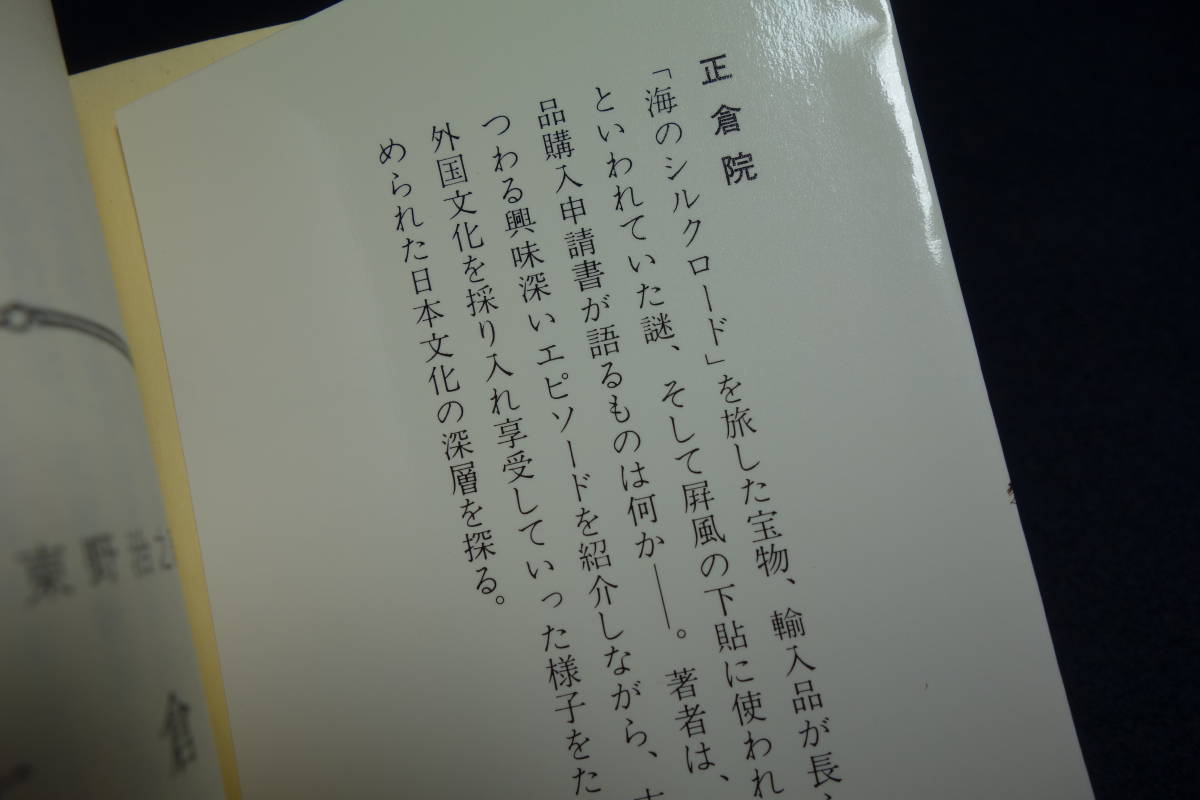 正倉院
「海のシルクロード」を旅した宝物、輸入品が長
といわれていた謎、そして屛風の下貼に使われ
品購入申請書が語るものは何か――。著者は、
つわる興味深いエピソードを紹介しながら、
外国文化を採り入れ享受していった様子をた
められた日本文化の深層を探る。
東野治
倉